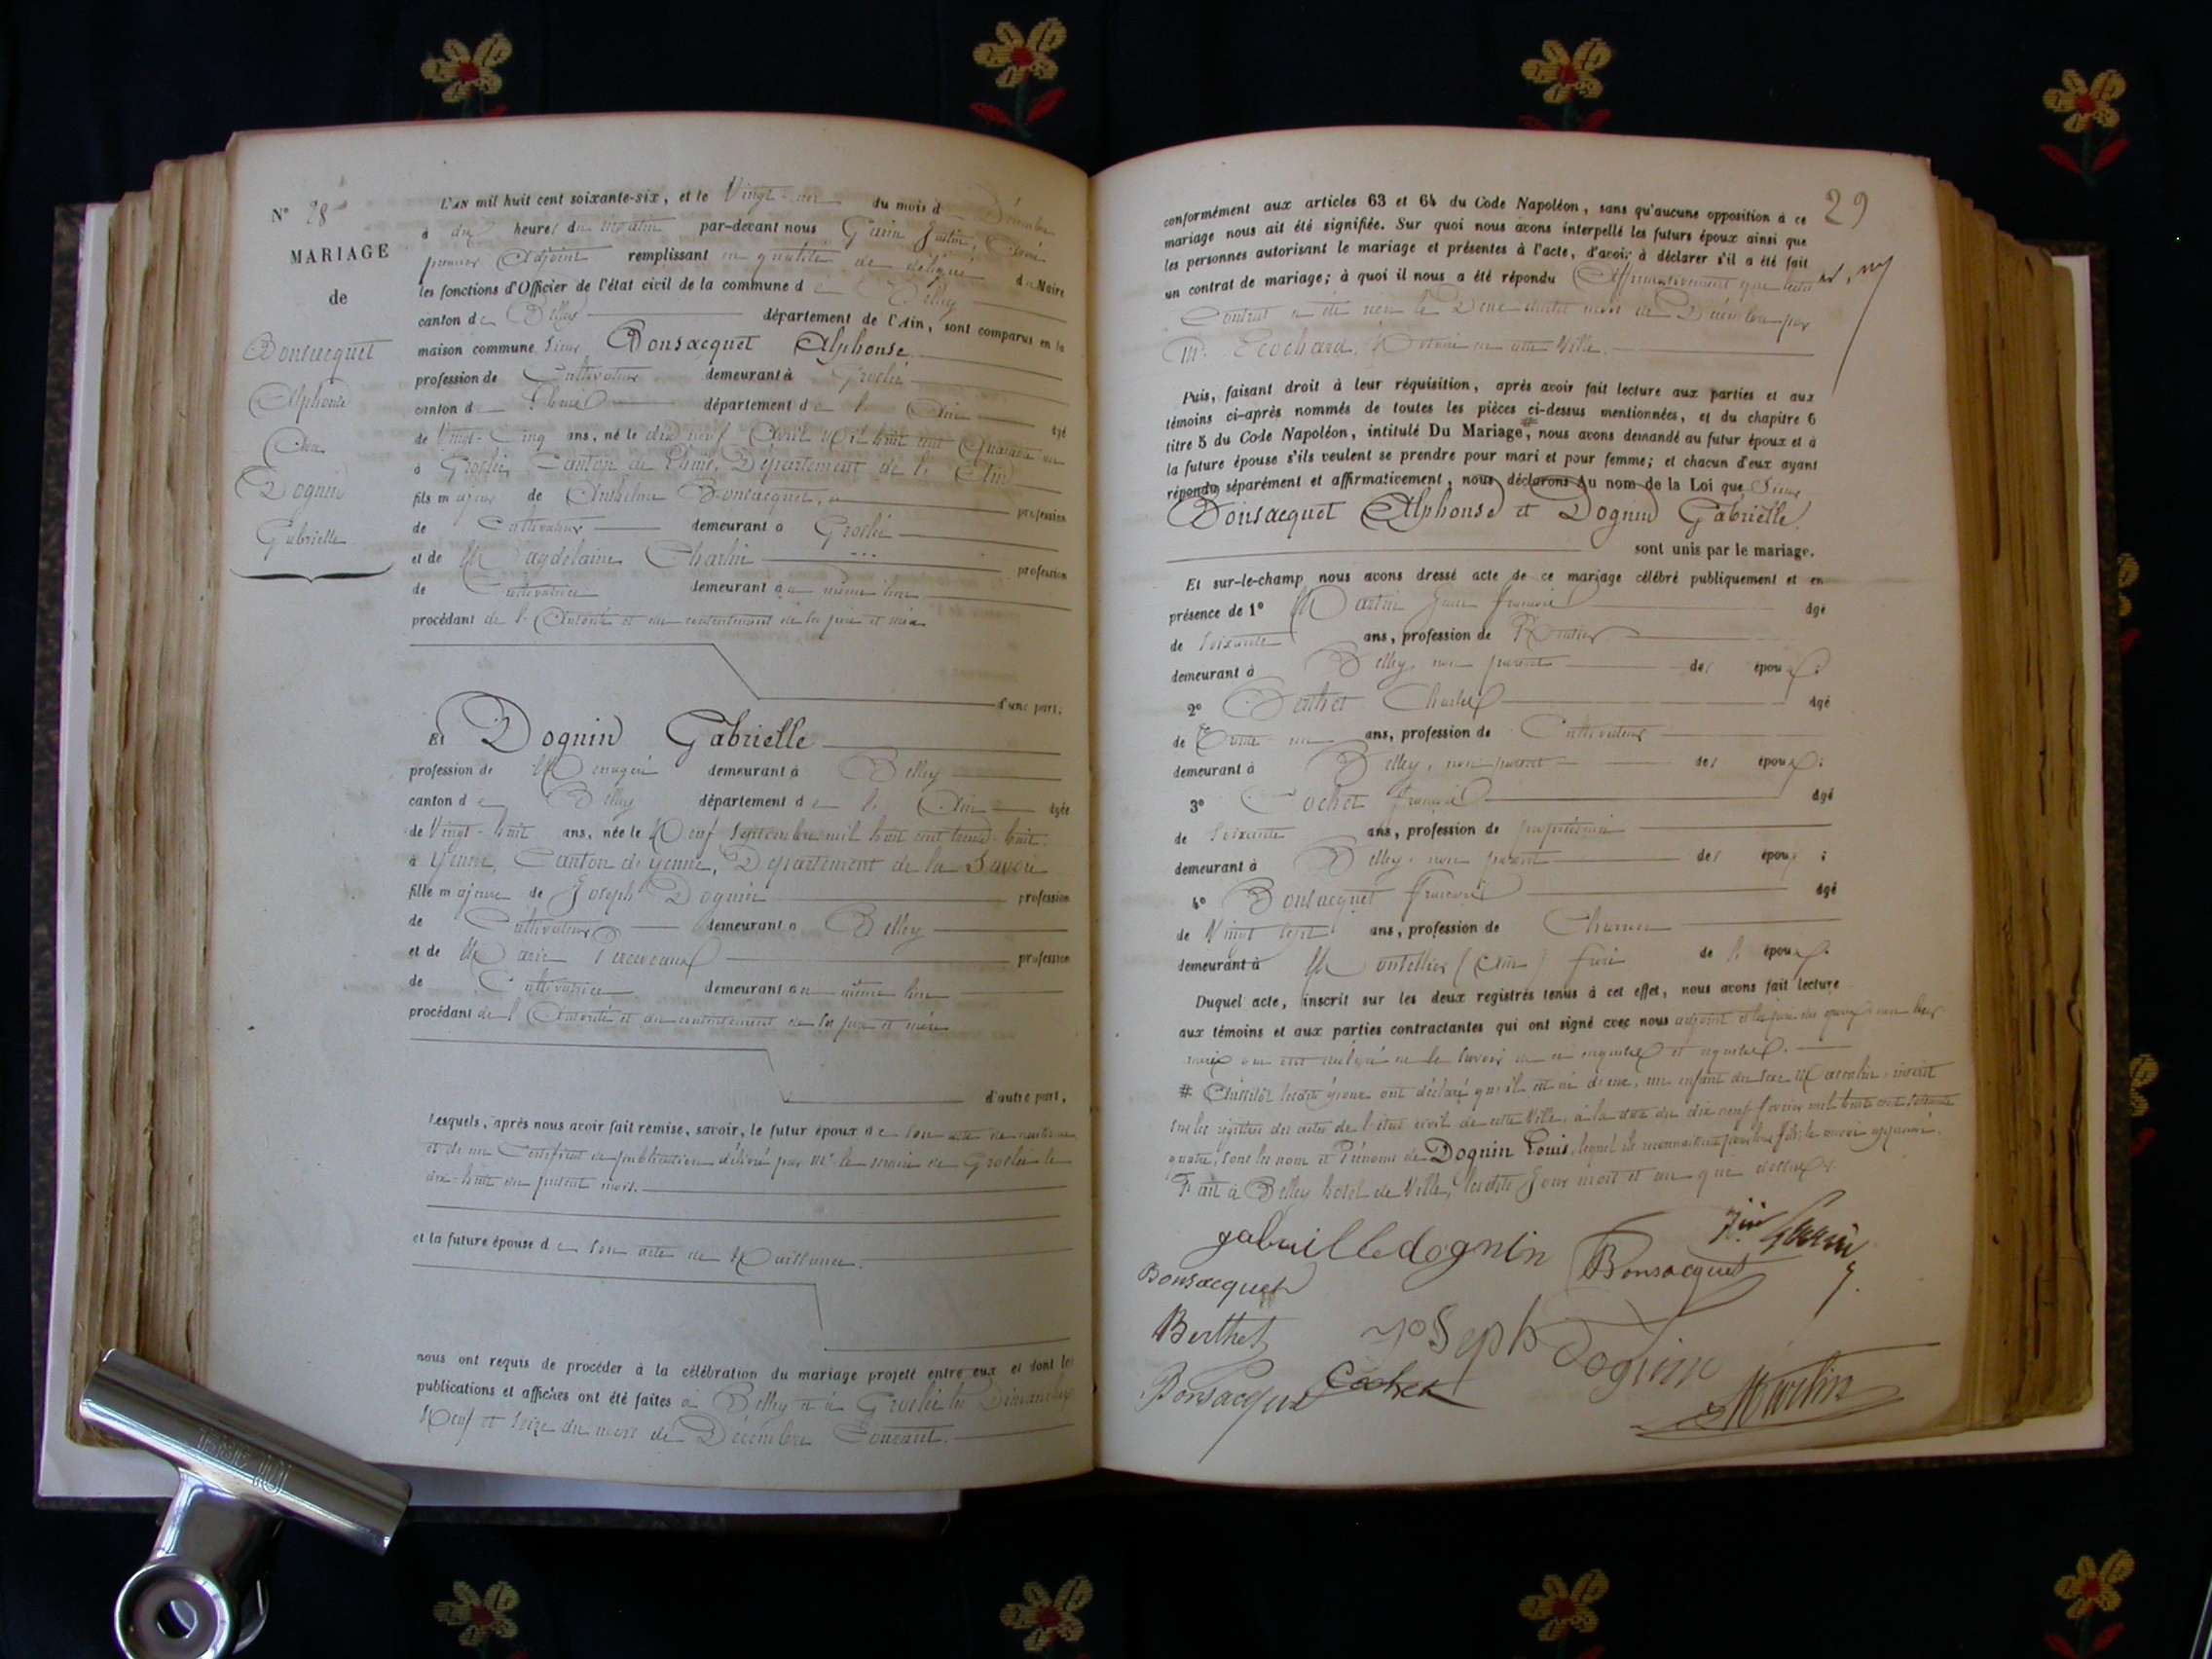 N° 28
MARIAGE
de
Bonsacquet
Alphonse
Dognin
Gabrielle
L'AN mil huit cent soixante-six, et le Vingt du mois de Décembre
à dix heures du matin par-devant nous
premier Adjoint remplissant en qualité de délégué du Maire
les fonctions d'Officier de l'état civil de la commune de Belley
canton de Belley département de l'Ain, sont comparus en la
maison commune Sieur Bonsacquet Alphonse
profession de Cultivateur demeurant à Groslée
canton d département de l'Ain âgé
de Vingt-Cinq ans, né le dix neuf Avril Mil huit cent Quarante un
à Groslée, Canton de Département de l'Ain
fils majeur de Anthelme Bonsacquet, profession
de Cultivateur demeurant à Groslée
et de Magdelaine Charlin profession
de Cultivatrice demeurant au même lieu
procédant de l'Autorité et du consentement de ses père et mère
d'une part;
Et Dognin Gabrielle
profession de Ménagère demeurant à Belley
canton de Belley département de l'Ain âgée
de Vingt-huit ans, née le Neuf Septembre mil huit cent trente-huit
à Yenne, Canton de Yenne, Département de la Savoie
fille majeure de Joseph Dognin profession
de Cultivateur demeurant à Belley
et de Marie profession
de Cultivatrice demeurant au même lieu
procédant de l'Autorité et du consentement de ses père et mère
d'autre part,
Lesquels, après nous avoir fait remise, savoir, le futur époux de son acte de naissance
et de un Certificat de publication délivré par Mr le maire de Groslée le
dix-huit du présent mois.
et la future épouse de son acte de Naissance.
nous ont requis de procéder à la célébration du mariage projeté entre eux et dont les
publications et affiches ont été faites à Belley et à Groslée les Dimanches
Neuf et Seize du mois de Décembre Courant.
29
conformément aux articles 63 et 64 du Code Napoléon, sans qu'aucune opposition à ce
mariage nous ait été signifiée. Sur quoi nous avons interpellé les futurs époux ainsi que
les personnes autorisant le mariage et présentes à l'acte, d'avoir à déclarer s'il a été fait
un contrat de mariage; à quoi il nous a été répondu Affirmativement que ledit
Contrat a été reçu le Douze dudit mois de Décembre par
Mr Ecochard, Notaire en cette Ville.
Puis, faisant droit à leur réquisition, après avoir fait lecture aux parties et aux
témoins ci-après nommés de toutes les pièces ci-dessus mentionnées, et du chapitre 6
titre 5 du Code Napoléon, intitulé Du Mariage, # nous avons demandé au futur époux et à
la future épouse s'ils veulent se prendre pour mari et pour femme; et chacun d'eux ayant
répondu séparément et affirmativement, nous déclarons au nom de la Loi que Sieur
Bonsacquet Alphonse et Dognin Gabrielle
sont unis par le mariage.
Et sur-le-champ nous avons dressé acte de ce mariage célébré publiquement et en
présence de 1° Martin François âgé
de soixante ans, profession de Rentier
demeurant à Belley, non parent des époux;
2° Berthet Charles âgé
de Trente un ans, profession de Cultivateur
demeurant à Belley, non parent des époux;
3° Cochet François âgé
de soixante ans, profession de propriétaire
demeurant à Belley, non parent des époux;
4° Bonsacquet François âgé
de Vingt sept ans, profession de Charron
demeurant à Montellier (Ain) frère de l'époux.
Duquel acte, inscrit sur les deux registres tenus à cet effet, nous avons fait lecture
aux témoins et aux parties contractantes qui ont signé avec nous adjoint et les pères des époux, non leurs
mères qui ont déclaré ne le savoir de ce enquises et requises.
# Aussitôt lesdits époux ont déclaré qu'il est né d'eux, un enfant du sexe Masculin, inscrit
sur les registres des actes de l'état civil de cette Ville, à la date du dix neuf février mil huit cent soixante
quatre, sous les nom et Prénoms de Dognin Louis, lequel ils reconnaissent pour leur fils;
Fait à Belley hotel de Ville, lesdits Jour mois et an que dessus.
gabrielle dognin
Bonsacquet
Bonsacquet
Berthet
Joseph Dognin
Bonsacquet
Cochet
Martin